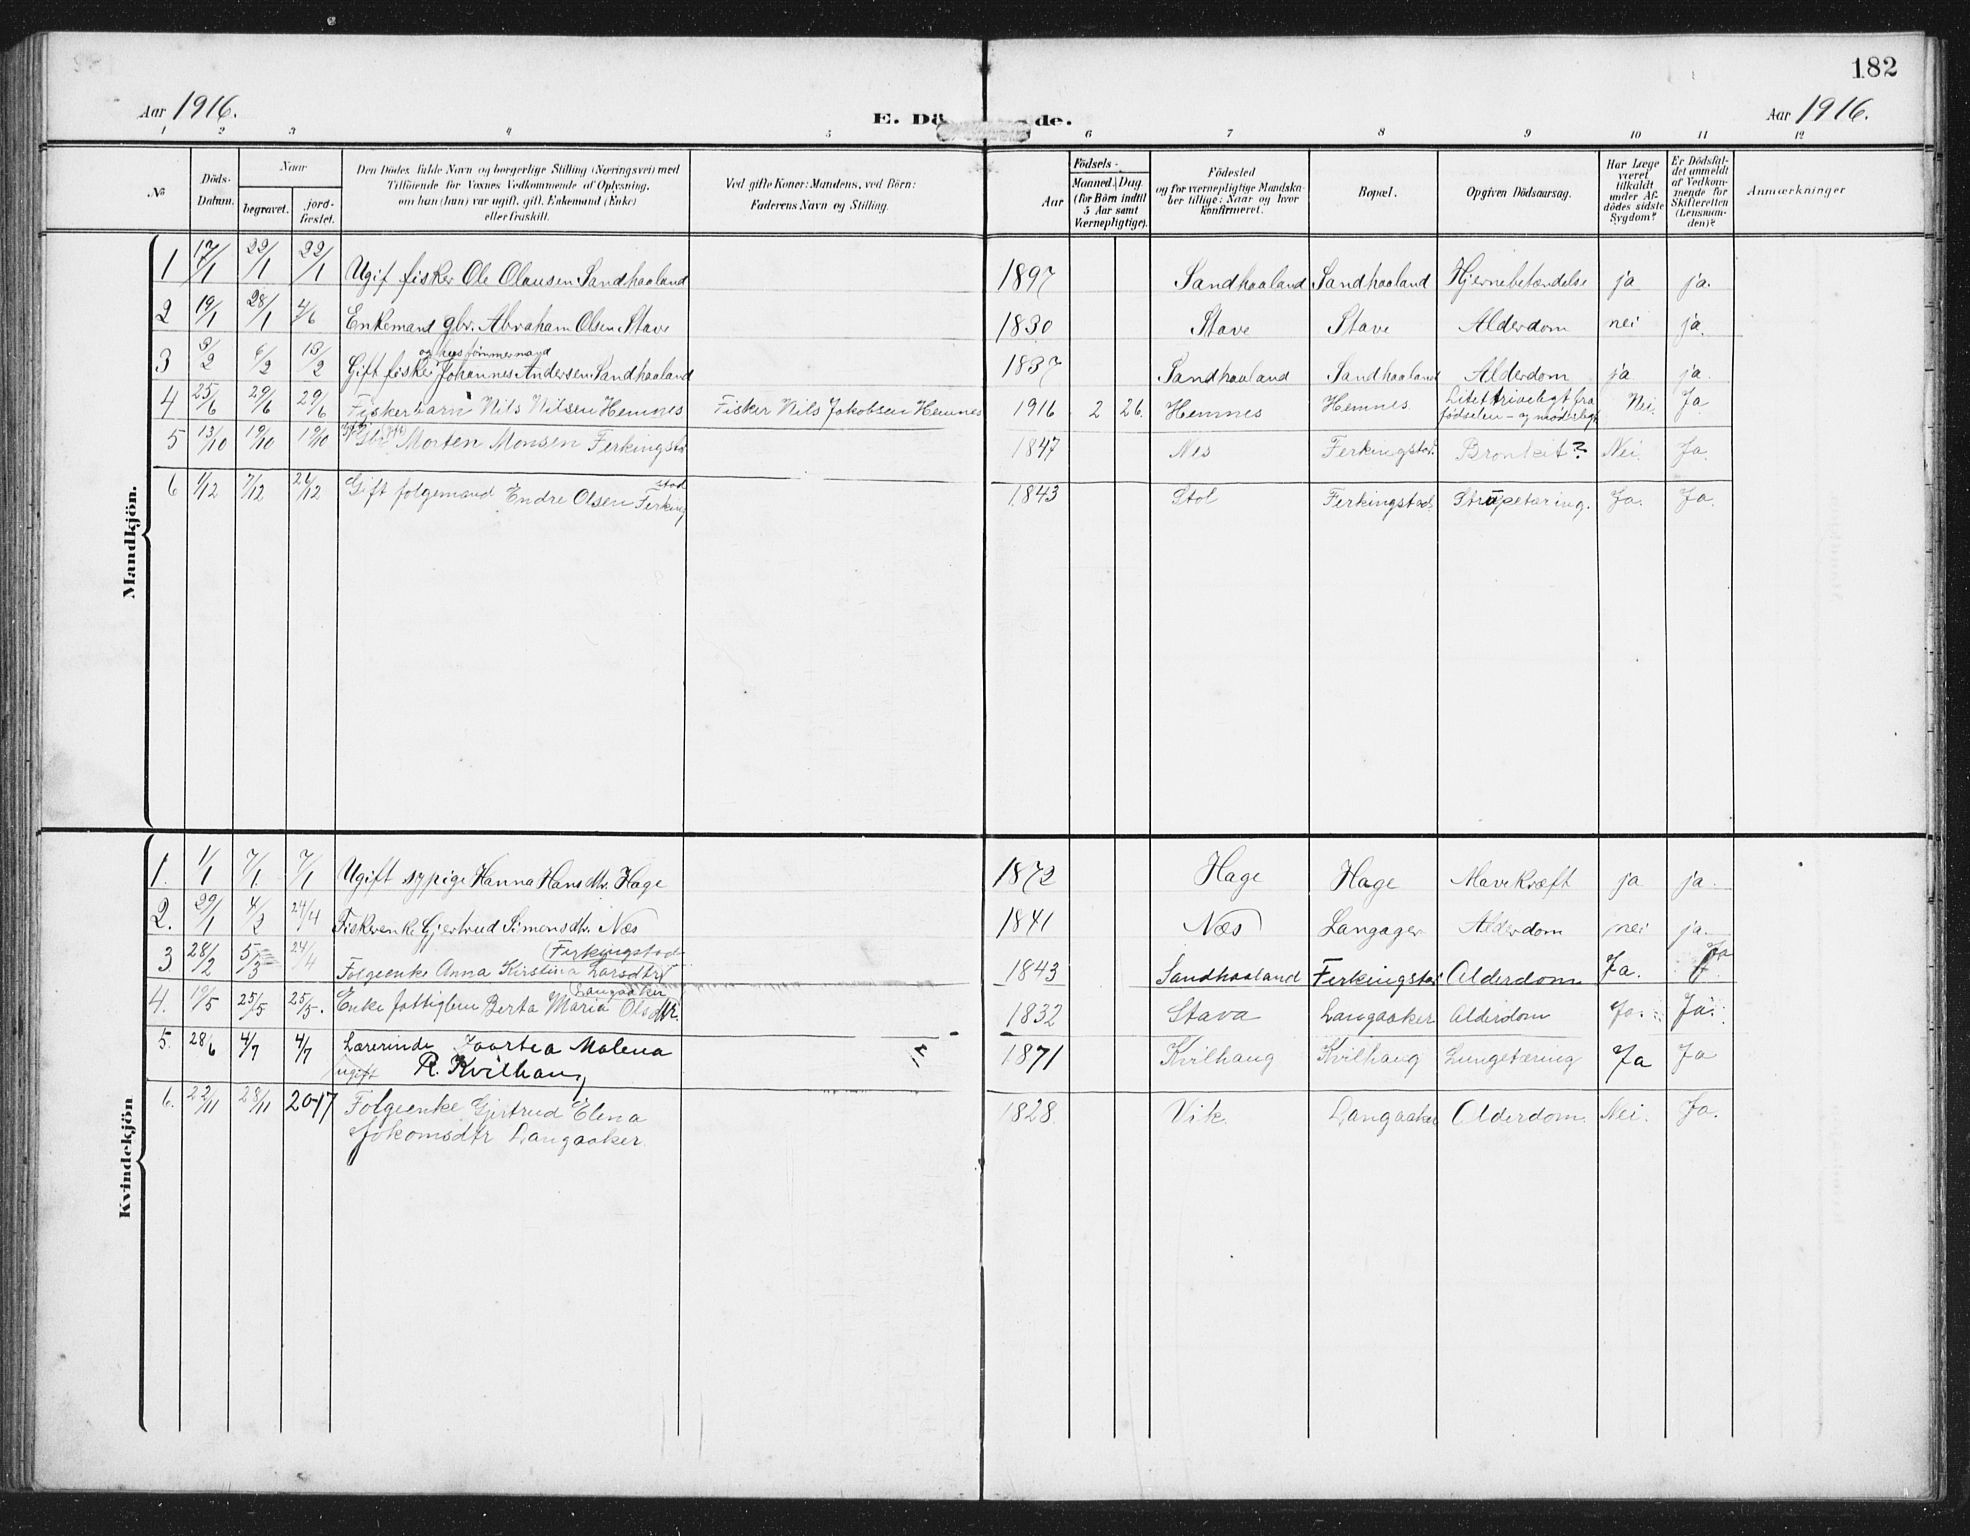 182
Aar 1916. E. Dö de. Aar 1916.
1 2 3 4 5 6 7 8 9 10 11 12
No Döds-Datum. Naar begravet. jord-fæstet. Den Dödes fulde Navn og borgerlige Stilling (Næringsvei) med Tilföiende for Voxnes Vedkommende af Oplysning, om han (hun) var ugift, gift, Enkemand (Enke) eller fraskilt. Ved gifte Koner: Mandens, ved Börn: Faderens Navn og Stilling. Aar Födsels- Maaned. Dag. (for Börn indtil 5 Aar samt Værnepligtige). Födested og for værnepligtige Mandska-ber tillige: Naar og hvor konfirmeret. Bopæl. Opgiven Dödsaarsag. Har Læge været tilkaldt under Af-dödes sidste Sygdom? Er Dödsfal-det anmeldt af Vedkom-mende for Skifteretten (Lensman-den)? Anmærkninger
Mandkjön.
1 17/1 22/1 22/1 Ugif fisker Ole Olausen Sandhaaland 1897 Sandhaaland Sandhaaland Hjernebetændelse ja ja.
2 19/1 28/1 4/6 Enkemand gbr. Abraham Olsen Stave 1830 Stave Stave Alderdom nei ja.
og hustømmermand
3 3/2 6/2 13/2 Gift fisker Johannes Andersen Sandhaaland 1837 Sandhaaland Sandhaaland Alderdom ja ja.
4 25/6 29/6 29/6 Fiskerbarn Nils Nilsen Hemnes Fisker Nils Jakobsen Hemnes 1916 2 26. Hemnes Hemnes. Litet triveligt fra fødselen - Nei. Ja
5 13/10 19/10 19/10 Morten Monsen Ferkingst. 1847 Nes Ferkingstad Bronkit? Nei. Ja.
stad
6 1/12 7/12 21/12 Gift følgemand Endre Olsen Ferking 1843 Stol Ferkingstad. Strupetæring. Ja. Ja.
Kvindekjön
1. 1/1 7/1 7/1 Ugift sypige Hanna Hansdtr. Hage 1872 Hage Hage Mavekræft ja ja.
2. 29/1 4/2 24/4 Fiskerenke Gjertrud Simonsdtr. Næs 1841 Næs Langager Alderdom nei ja.
Ferkingstad
3 28/2 5/3 24/4 Følgeenke Anna Kirstina Larsdtr 1843 Sandhaaland Ferkingstad Alderdom Ja. Ja
Langaaker
4. 19/5 25/5 25/5. Enke fattiglem Berta Maria Olsdtr. 1832 Stava Langaaker Alderdom Ja. Ja.
5. 28/6 4/7 4/7 Lærerinde Taartea Malena 1871 Kvilhaug Kvilhaug Lungetæring Ja Ja
ugift R. Kvilhaug
6. 22/11 28/11 20-17 Følgeenke Gjertrud Elena 1828. Vik. Langaaker Alderdom. Nei. Ja.
Jokomsdtr Langaaker.